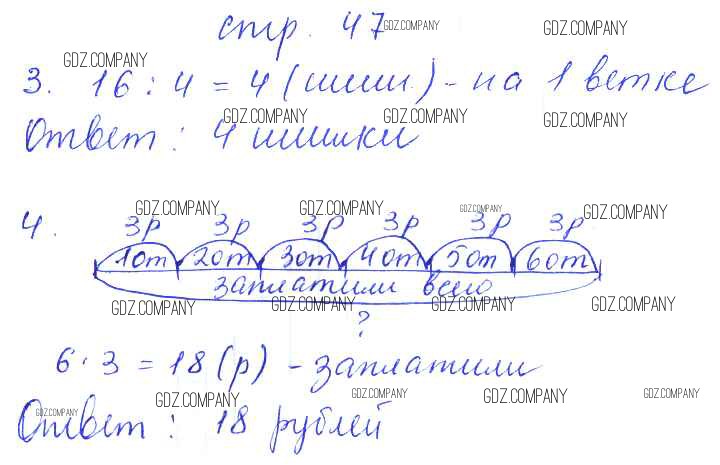 стр. 47 GDZ.COMPANY GDZ.COMPANY
GDZ.COMPANY
3. 16 : 4 = 4 (шиш.) - на 1 ветке
GDZ.COMPANY GDZ.COMPANY GDZ.COMPANY
Ответ : 4 шишки
GDZ.COMPANY GDZ.COMPANY GDZ.COMPANY GDZ.COMPANY
4. 3р 3р 3р 3р 3р 3р
1от 2от 3от 4от 5от 6от
заплатили всего
GDZ.COMPANY GDZ.COMPANY GDZ.COMPANY GDZ.COMPANY
?
6 · 3 = 18 (р) - заплатили
GDZ.COMPANY GDZ.COMPANY GDZ.COMPANY GDZ.COMPANY GDZ.COMPANY
Ответ : 18 рублей